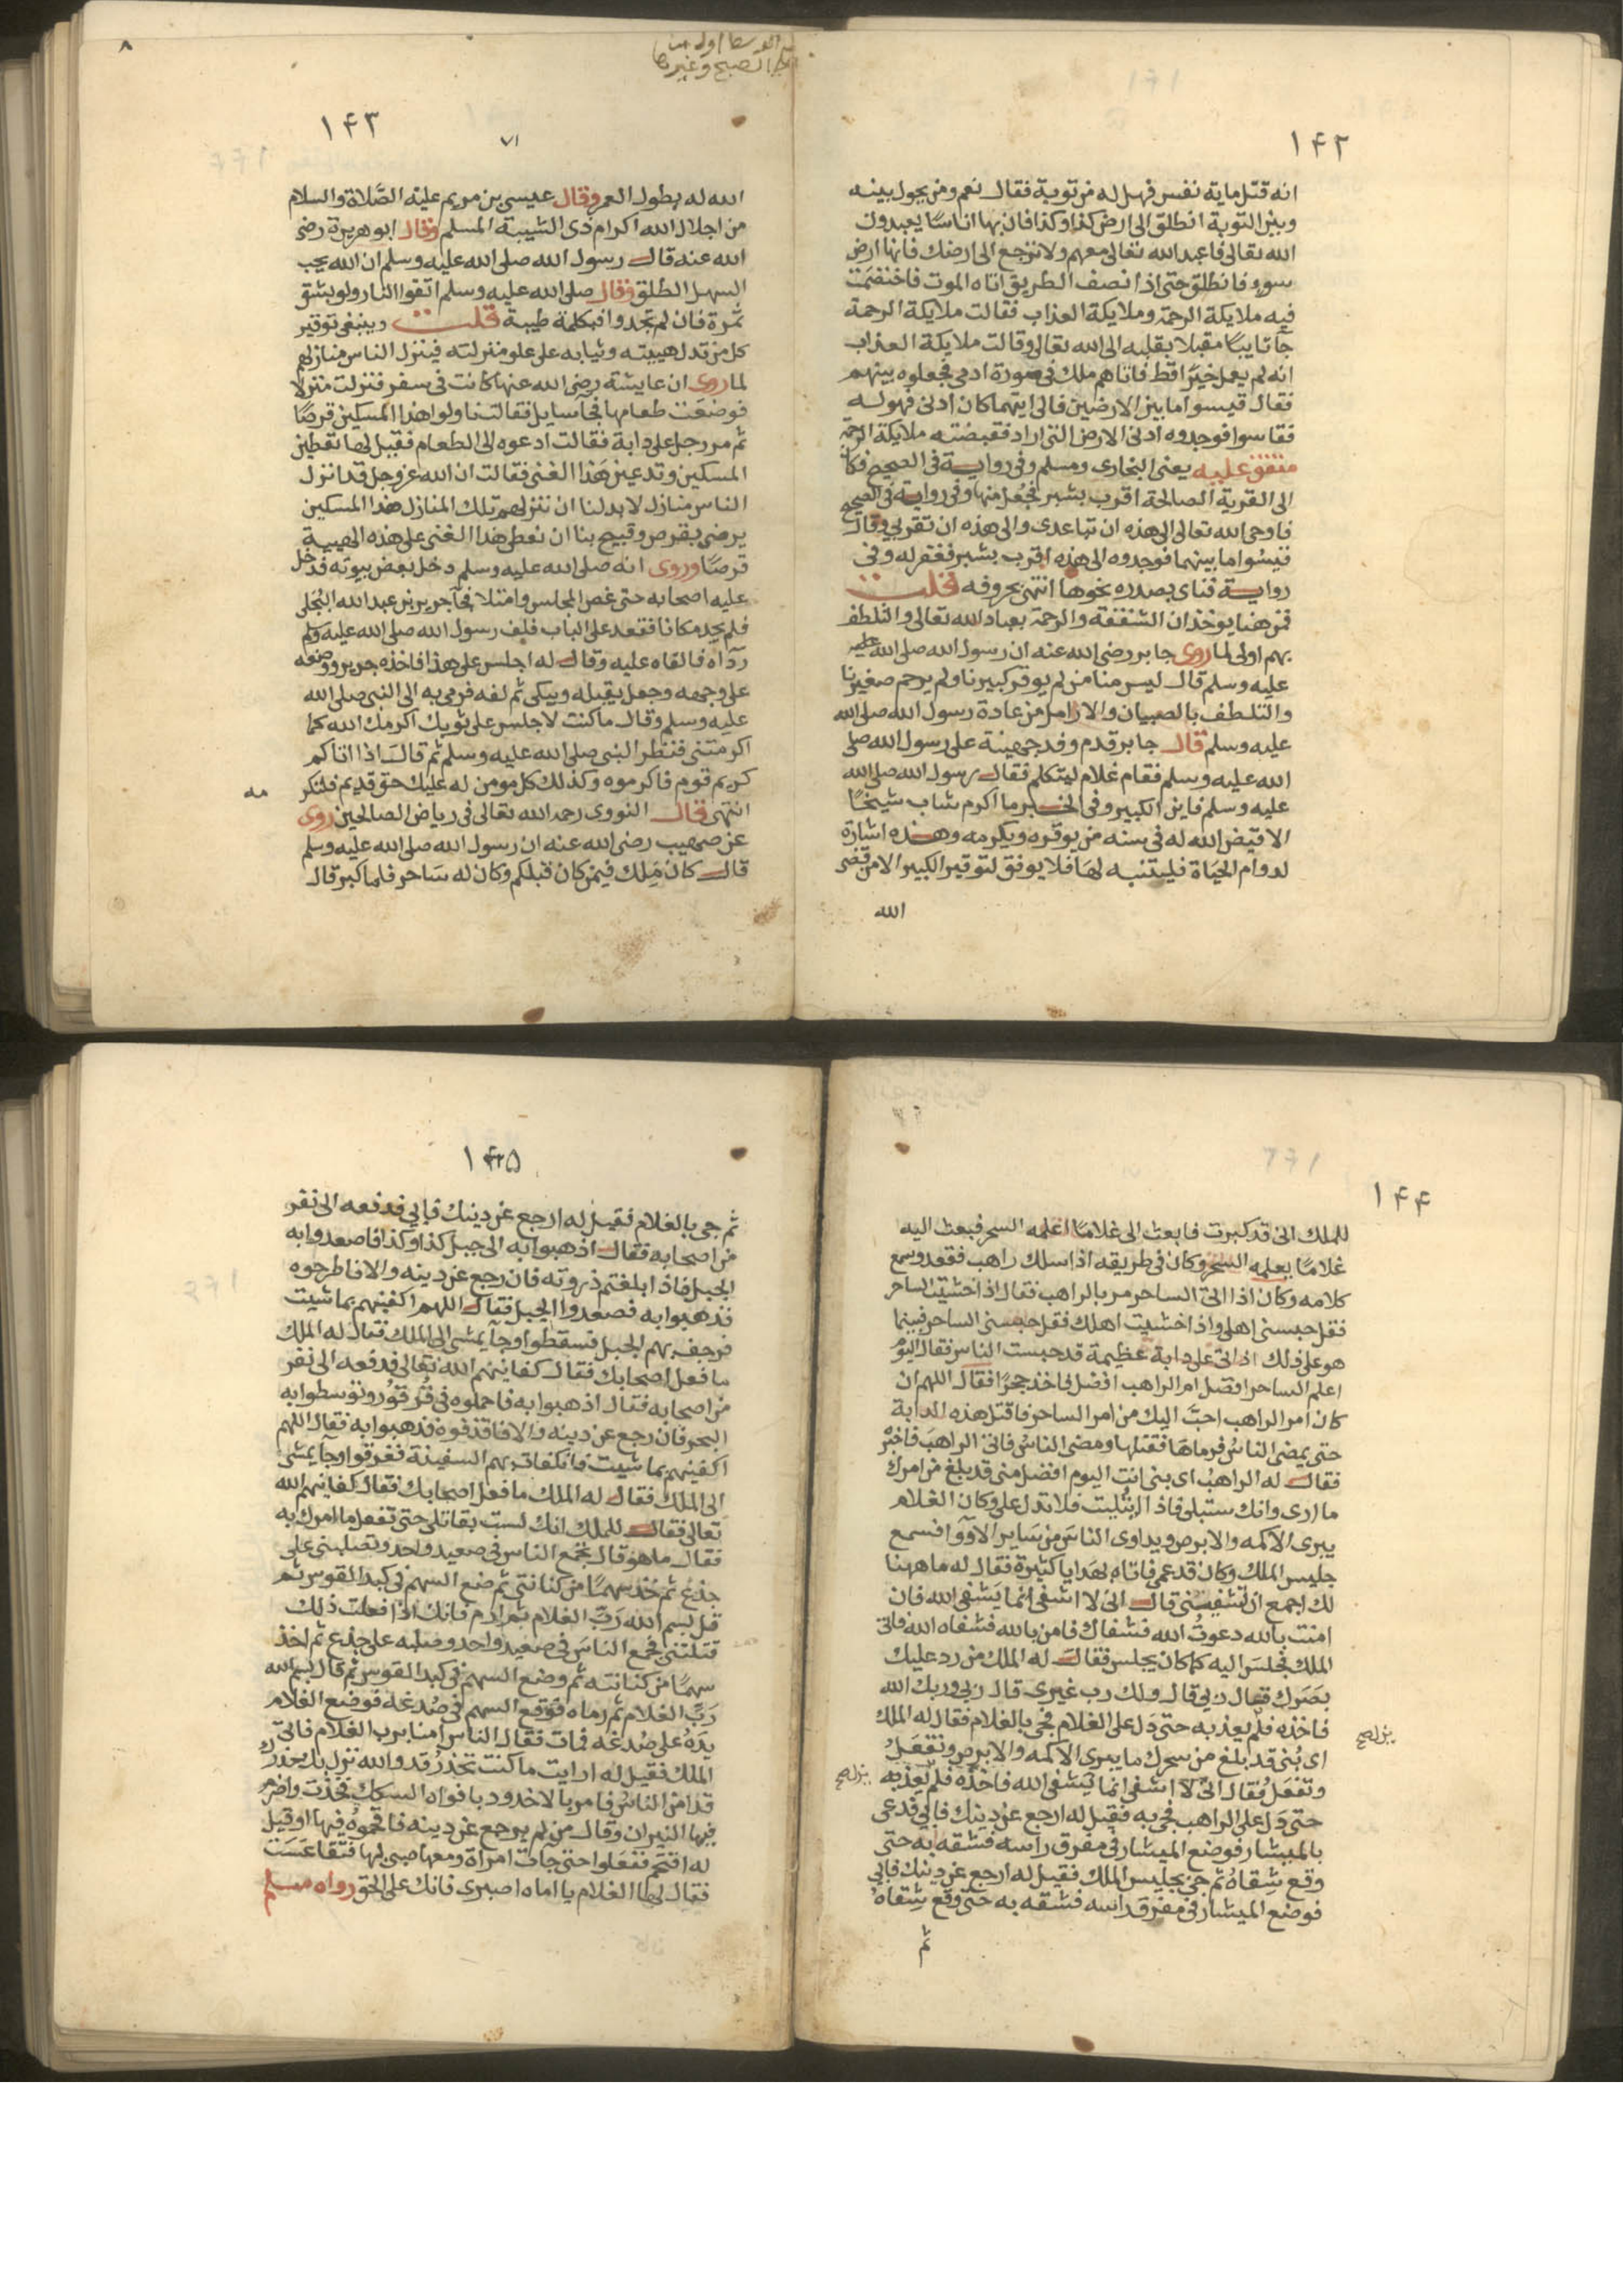 ١٤٢
انه قتل ماية نفس فهل له من توبة فقال نعم ومن يحول بينه
وبين التوبة انطلق الى ارض كذا وكذا فان بها اناسا يعبدون
الله تعالى فاعبد الله تعالى معهم ولا ترجع الى ارضك فانها ارض
سوء فانطلق حتى اذا نصف الطريق اتاه الموت فاختصمت
فيه ملايكة الرحمة وملايكة العذاب فقالت ملايكة الرحمة
جآ تايبًا مقبلا بقلبه الى الله تعالى وقالت ملايكة العذاب
انه لم يعمل خيرًا قط فاتاهم ملك فى صورة ادمى فجعلوه بينهم
فقال قيسوا ما بين الارضين فالى ايتهما كان ادنى فهو له
فقاسوا فوجدوه ادنى الارض التى اراد فقبضته ملايكة الرحمة
متفق عليه يعنى البخارى ومسلم وفى رواية فى الصحيح فكان
الى القرية الصالحة اقرب بشبر فجُعل منها وفى رواية فى الصحيح
فاوحى الله تعالى الى هذه ان تباعدى والى هذه ان تقربى وقال
قيسُوا ما بينهما فوجدوه الى هذه اقرب بشبر فغفر له وفى
رواية فناى بصدره نحوها انتهى بحروفه قلت
فمن هنا يوخذ ان الشفقة والرحمة بعباد الله تعالى والتلطف
بهم اولى لما روى جابر رضى الله عنه ان رسول الله صلى الله عليه
عليه وسلم قال ليس منا من لم يوقر كبيرنا ولم يرحم صغيرنا
والتلطف بالصبيان والارامل من عادة رسول الله صلى الله
عليه وسلم قال جابر قدم وفد جهينة على رسول الله صلى
الله عليه وسلم فقام غلام ليتكلم فقال رسول الله صلى الله
عليه وسلم فاين الكبير وفى الخبر ما اكرم شاب شيخًا
الا قيض الله له فى سنه من يوقره ويكرمه وهذه اشارة
لدوام الحياة فليتنبه لها فلا يوفق لتوقير الكبير الا من قضى
الله
٨
الصبح وغيرها
١٤٣
٧١
الله له بطول العمر وقال عيسى بن مريم عليه الصَّلاة والسلام
من اجلال الله اكرام ذى الشيبة المسلم وقال ابو هريرة رضى
الله عنه قال رسول الله صلى الله عليه وسلم ان الله يحب
السهل الطلق وقال صلى الله عليه وسلم اتقوا النار ولو بشق
تمرة فان لم تجدوا فبكلمة طيبة قلت وينبغى توقير
كل من تدل هيبته وثيابه على علو منزلته فينزل الناس منازلهم
لما روى ان عايشة رضى الله عنها كانت فى سفر فنزلت منزلا
فوضعت طعامها فجآ سايل فقالت ناولوا هذا المسكين قرصًا
ثم مر رجل على دابة فقالت ادعوه الى الطعام فقيل لها تعطين
المسكين وتدعين هذا الغنى فقالت ان الله عز وجل قد انزل
الناس منازل لا بد لنا ان ننزلهم تلك المنازل هذا المسكين
يرضى بقرص وقبيح بنا ان نعطى هذا الغنى على هذه الهيبة
قرصًا وروى انه صلى الله عليه وسلم دخل بعض بيوته فدخل
عليه اصحابه حتى غص المجلس وامتلا فجآ جرير بن عبد الله البجلى
فلم يجد مكانا فقعد على الباب فلف رسول الله صلى الله عليه وسلم
ردآه فالقاه عليه وقال له اجلس على هذا فاخذه جرير ووضعه
على وجهه وجعل يقبله ويبكى ثم لفه فرمى به الى النبى صلى الله
عليه وسلم وقال ما كنت لاجلس على ثوبك اكرمك الله كما
اكرمتنى فنظر النبى صلى الله عليه وسلم ثم قال اذا اتاكم
كريم قوم فاكرموه وكذلك كل مومن له عليك حق قديم فلتكر
مه
انتهى قال النووى رحمه الله تعالى فى رياض الصالحين روى
عن صهيب رضى الله عنه ان رسول الله صلى الله عليه وسلم
قال كان مَلِك فيمن كان قبلكم وكان له سَاحر فلما كبر قال
١٤٤
للملك انى قد كبرت فابعث الى غلامًا اعلمه السحر فبعث اليه
غلامًا يعلمه السحر وكان فى طريقه اذا سلك راهب فقعد وسمع
كلامه وكان اذا اتى الساحر مر بالراهب فقال اذا خشيت الساحر
فقل حبسنى اهلى واذا خشيت اهلك فقل حبسنى الساحر فبينما
هو على ذلك اذ اتى على دابة عظيمة قد حبست الناس فقال اليوم
اعلم الساحر افضل ام الراهب افضل فاخذ حجرًا فقال اللهم ان
كان امر الراهب احبَّ اليك من امر الساحر فاقتل هذه الدابة
حتى يمضى الناسُ فرماهَا فقتلها ومضى الناسُ فاتى الراهبَ فاخبره
فقال له الراهبُ اى بنى انت اليوم افضل منى قد بلغ من امرك
ما ارى وانك ستبلى فاذا ابتُليت فلا تدل على وكان الغلام
يبرى الاكمه والابرص ويداوى الناسَ من سَاير الادْوآ فسمع
جليس الملك وكان قد عمى فاتاه بهدايا كثيرة فقال له ما ههنا
لك اجمع ان تشفيتنى قال انى لا اشفى انما يَشفى الله فان
امنت بالله دعوتُ الله فشفاك فامن بالله فشفاه الله فاتى
الملك فجلسَ اليه كما كان يجلس فقال له الملك من رد عليك
بصَرك فقال ربى قال ولك رب غيرى قال ربى وربك الله
فاخذه فلم يعذبه حتى دَل على الغلام فجى بالغلام فقال له الملك
اى بُنى قد بلغ من سحرك ما يبرى الاكمه والابرص وتفعَلُ
وتفعَلُ فقال انى لا اشفى انما يَشفى الله فاخذه فلم يعذبه
حتى دَل على الراهب فجى به فقيل له ارجع عن دينك فابى فدعى
بالميشار فوضع الميشار فى مفرق راسه فشقه به حتى
وقع شِقاهُ ثم جى بجليس الملك فقيل له ارجع عن دينك فابى
فوضع الميشار فى مفرق راسه فشقه به حتى وقع شِقاهُ
ثم
١٤٥
ثم جى بالغلام فقيل له ارجع عن دينك فابى فدفعه الى نفر
من اصحابه فقال اذهبوا به الى جبل كذا وكذا فاصعدوا به
الجبل فاذا بلغتم ذروته فان رجع عن دينه والا فاطرحوه
فذهبوا به فصعدوا الجبل فقال اللهم اكفينهم بما شيت
فرجف بهم الجبل فسقطوا وجآ يمشى الى الملك فقال له الملك
ما فعل اصحابك فقال كفانيهم الله تعالى فدفعه الى نفر
من اصحابه فقال اذهبوا به فاحملوه فى قُرقُور وتوسطوا به
البحر فان رجع عن دينه والا فاقذفوه فذهبوا به فقال اللهم
اكفينهم بما شيت فانكفات بهم السفينة فغرقوا وجآ يمشى
الى الملك فقال له الملك ما فعل اصحابك فقال كفانيهم الله
تعالى فقال للملك انك لست بقاتلى حتى تفعل ما امرك به
فقال ما هو قال تجمع الناس فى صعيد واحد وتصلبنى على
جذع ثم خذ سهمًا من كنانتى ثم ضع السهم فى كبد القوس ثم
قل بسم الله ربّ الغلام ثم ارم فانك اذا فعلت ذلك
قتلتنى فجمع الناسَ فى صعيد واحد وصلبه على جذع ثم اخذ
سهمًا من كنانته ثم وضع السهم فى كبد القوس ثم قال بسم الله
رَبّ الغلام ثم رماه فوقع السهم فى صُدغه فوضع الغلام
يدَهُ على صُدغه فمات فقال الناس امنا برب الغلام فاتى
الملك فقيل له ارايت ما كنت تحذرُ قد والله نزل بك حذرك
قد امن الناسُ فامر بالاخدود بافواه السكك فخدت واضرم
فيها النيران وقال من لم يرجع عن دينه فاقحموهُ فيها او قيل
له اقتحم ففعَلوا حتى جات امراة ومعها صبى لها فتقاعَسَت
فقال لها الغلام يا اماه اصبرى فانك على الحق رواه مسلم